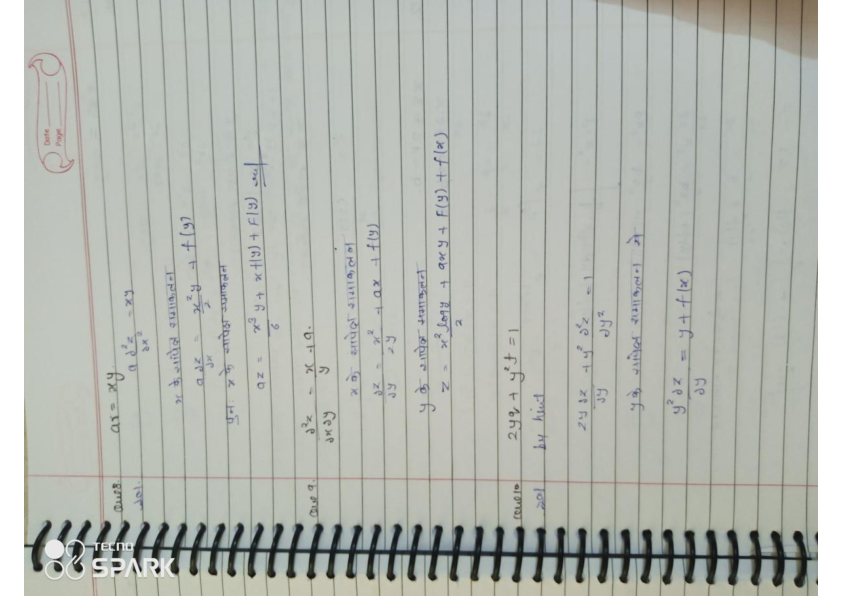 Date
Page
ques 8. ar = xy
sol. a ∂²z/∂x² = xy
x के सापेक्ष समाकलन
a ∂z/∂x = x²y/2 + f(y)
पुनः x के सापेक्ष समाकलन
az = x³y/6 + xf(y) + F(y)
ques 9. ∂²z/∂x∂y = x/y + a.
x के सापेक्ष समाकलन
∂z/∂y = x²/2y + ax + f(y)
y के सापेक्ष समाकलन
z = x² logy/2 + axy + F(y) + f(x)
ques 10 2yq + y²t = 1
sol by hint
2y ∂z/∂y + y² ∂²z/∂y² = 1
y के सापेक्ष समाकलन से
y² ∂z/∂y = y + f(x)
TECNO
SPARK